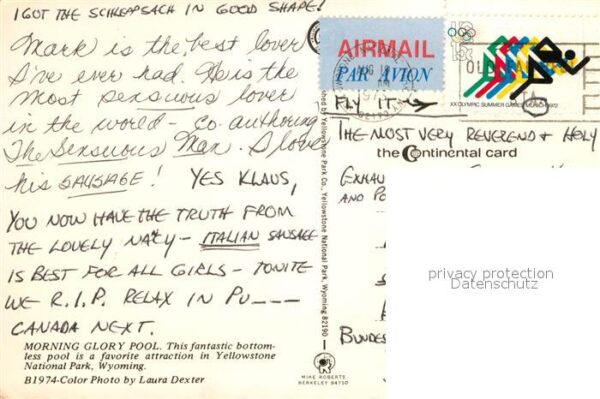 I GOT THE SCHLEPPSACH IN GOOD SHAPE!
Mark is the best lover
I've ever had. He is the
most sensuous lover
in the world - co-authoring
The Sensuous Man. I love
his SAUSAGE!
YES KLAUS,
YOU NOW HAVE THE TRUTH FROM
THE LOVELY - ITALIAN SAUSAGE
IS BEST FOR ALL GIRLS - TONITE
WE R.I.P. RELAX IN PU---
CANADA NEXT.
MORNING GLORY POOL. This fantastic bottom-
less pool is a favorite attraction in Yellowstone
National Park, Wyoming.
B1974-Color Photo by Laura Dexter
Published by Yellowstone Park Co., Yellowstone National Park, Wyoming 82190
MIKE ROBERTS
BERKELEY 94710
AIRMAIL
PAR AVION
FLY IT
XX OLYMPIC SUMMER GAMES MUNICH 1972
THE MOST VERY REVEREND & HOLY
the Continental card
AND
privacy protection
Datenschutz